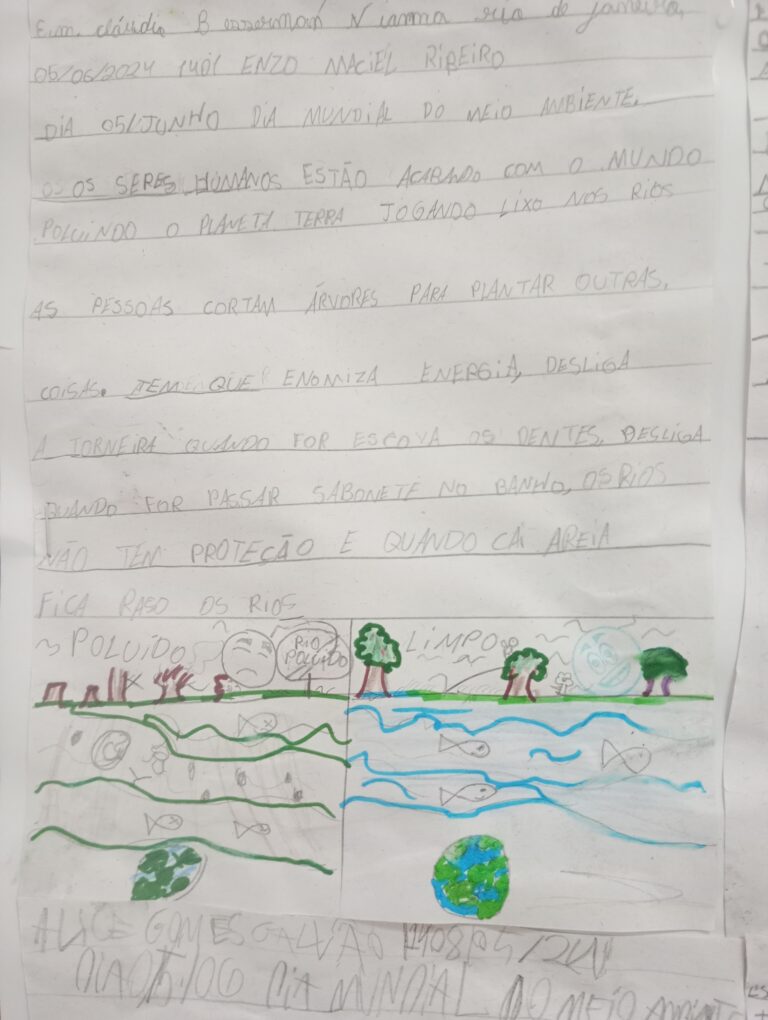 E.M. cláudio Besserman Vianna rio de janeiro,
05/06/2024 1401 ENZO MACIEL RIBEIRO
DIA 05/JUNHO DIA MUNDIAL DO MEIO AMBIENTE.
OS SERES HUMANOS ESTÃO ACABANDO COM O MUNDO
POLUINDO O PLANETA TERRA JOGANDO LIXO NOS RIOS
AS PESSOAS CORTAM ÁRVORES PARA PLANTAR OUTRAS,
COISAS. TEM QUE ENOMIZA ENERGIA, DESLIGA
A TORNEIRA QUANDO FOR ESCOVA OS DENTES, DESLIGA
QUANDO FOR PASSAR SABONETE NO BANHO, OS RIOS
NÃO TEM PROTEÇÃO E QUANDO CAI AREIA
FICA RASO OS RIOS
POLUÍDO
RIO
POLUIDO
LIMPO
ALICE GOMES GALVÃO
DIA 05/06 DIA MUNDIAL DO MEIO